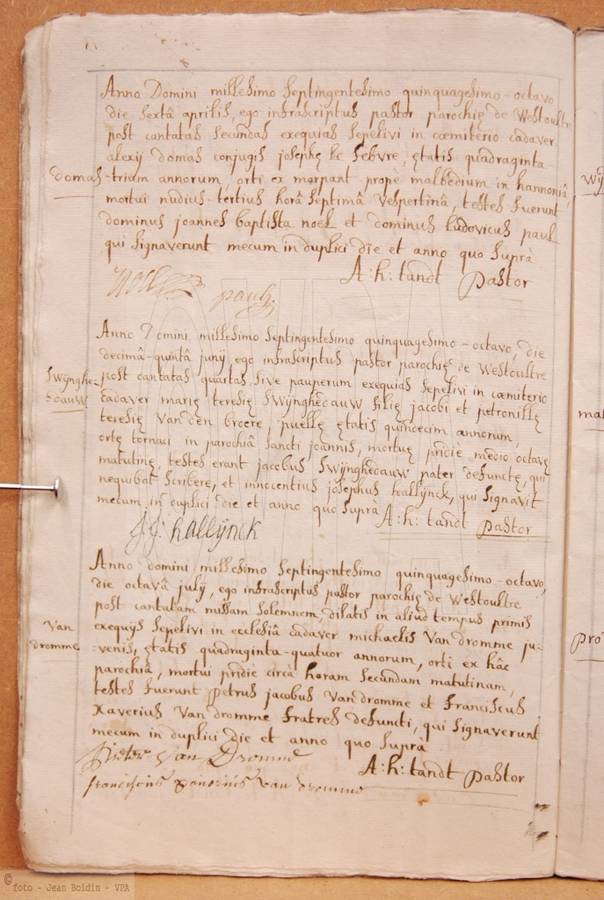 Anno Domini millesimo septingentesimo quinquagesimo-octavo
die sextâ aprilis, ego infrascriptus pastor parochiȩ de Westoultre
post cantatas secundas exequias sepelivi in cœmiterio cadaver
alexij domas conjugis josephȩ le febvre, ȩtatis quadraginta
domas
-trium annorum, orti ex morpant propè malbodium in hannoniâ,
mortui nudius-tertius horâ septimâ vespertinâ, testes fuerunt
dominus joannes baptista noel et dominus ludovicus paul
qui signaverunt mecum in duplici die et anno quo suprà
A: h: tandt pastor
noel paul
Anno Domini millesimo septingentesimo quinquagesimo-octavo, die
decimâ-quintâ junij ego infrascriptus pastor parochiȩ de Westoultre
Swijnghe-
dauw
post cantatas quartas sive pauperum exequias sepelivi in cœmiterio
cadaver mariȩ teresiȩ Swijnghedauw filiȩ jacobi et petronillȩ
teresiȩ Van den broere, puellȩ ȩtatis quindecim annorum,
ortȩ tornaci in parochiâ sancti joannis, mortuȩ pridie medio octavȩ
matutinȩ, testes erant jacobus Swijnghedauw pater defunctȩ, qui
nequibat scribere, et innocentius josephus hallijnck, qui signavit
mecum in duplici die et anno quo supra
A: h: tandt pastor
J:j: hallijnck
Anno domini millesimo septingentesimo quinquagesimo-octavo,
die octavâ julij, ego infrascriptus pastor parochiȩ de Westoultre
post cantatam missam solemnem, dilatis in aliud tempus primis
Van
dromme
exequijs sepelivi in ecclesiâ cadaver michaelis Van dromme ju-
-venis, ȩtatis quadraginta-quatuor annorum, orti ex hâc
parochiâ, mortui pridie circà horam secundam matutinam,
testes fuerunt petrus jacobus Van dromme et franciscus
Xaverius Van dromme fratres defuncti, qui signaverunt
mecum in duplici die et anno quo supra
A: h: tandt pastor
pieter van Dromme
franciscus van dromme
© foto - Jean Boidin - VPA